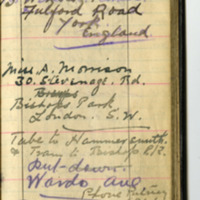 Fulford Road
York
England
Miss A. Morrison
30. Stevenage. Rd.
Bishops Park
London. S.W.
Tube to Hammersmith
& Tram to Bishop's Rd.
Put-down.
Wards Ave
Phone Putney